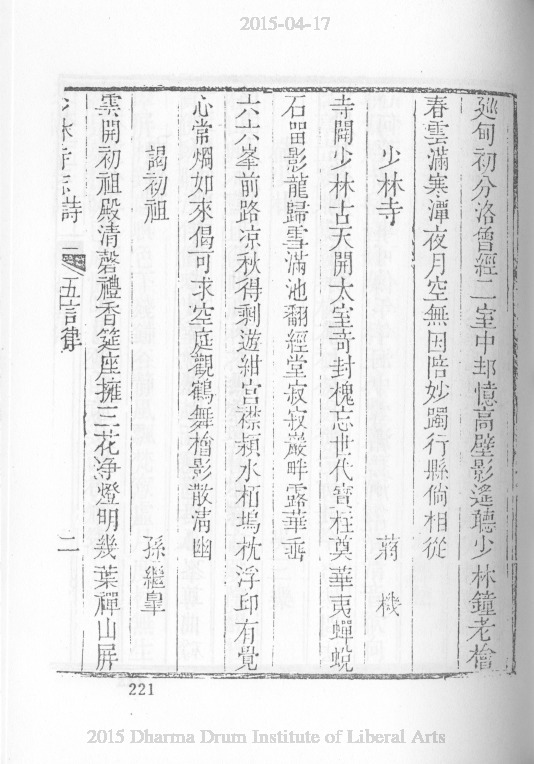 2015-04-17
甸初分洛曾經二室中却憶高壁影遙聽少林鐘老檜
春雲滿寒潭夜月空無因陪妙躅行縣倘相從
少林寺 蔣機
寺開少林古天開太室奇封槐忘世代寶柱奠華夷蟬蛻
石留影龍歸雪滿池翻經堂寂寂巖畔露華垂
六六峯前路凉秋得剩遊紺宮襟潁水栢塢枕浮印有覺
心常烱如來偈可求空庭觀鶴舞檜影散清幽
謁初祖 孫繼皇
雲開初祖殿清磬禮香筵座擁三花浄燈明幾葉禪山屏
少林寺志詩 五言律 二
221
2015 Dharma Drum Institute of Liberal Arts